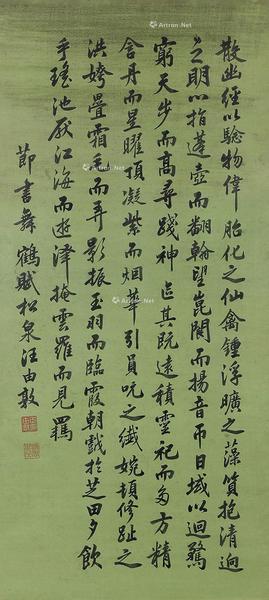 散幽经以验物伟胎化之仙禽锺浮旷之藻質抱清迥
之明心指蓬壶而翻翰望崑阆而扬音帀日域以迴鶩
窮天步而高尋踐神區其既遠積靈祀而多方精
含丹而星曜頂凝紫而烟華引員吭之纖婉頓修趾之
洪姱疊霜毛而弄影振玉羽而臨霞朝戲於芝田夕飲
乎瑤池厭江海而遊澤掩雲羅而見羈
節書舞鶴賦松泉汪由敦
Artron.Net
Artron.Net
Artron.Net
Artron.Net